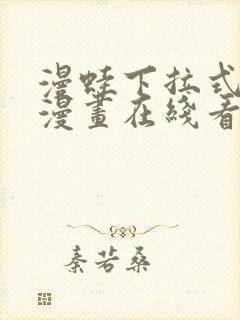 漫蛙下拉式
漫畫在綫看
秦若桑